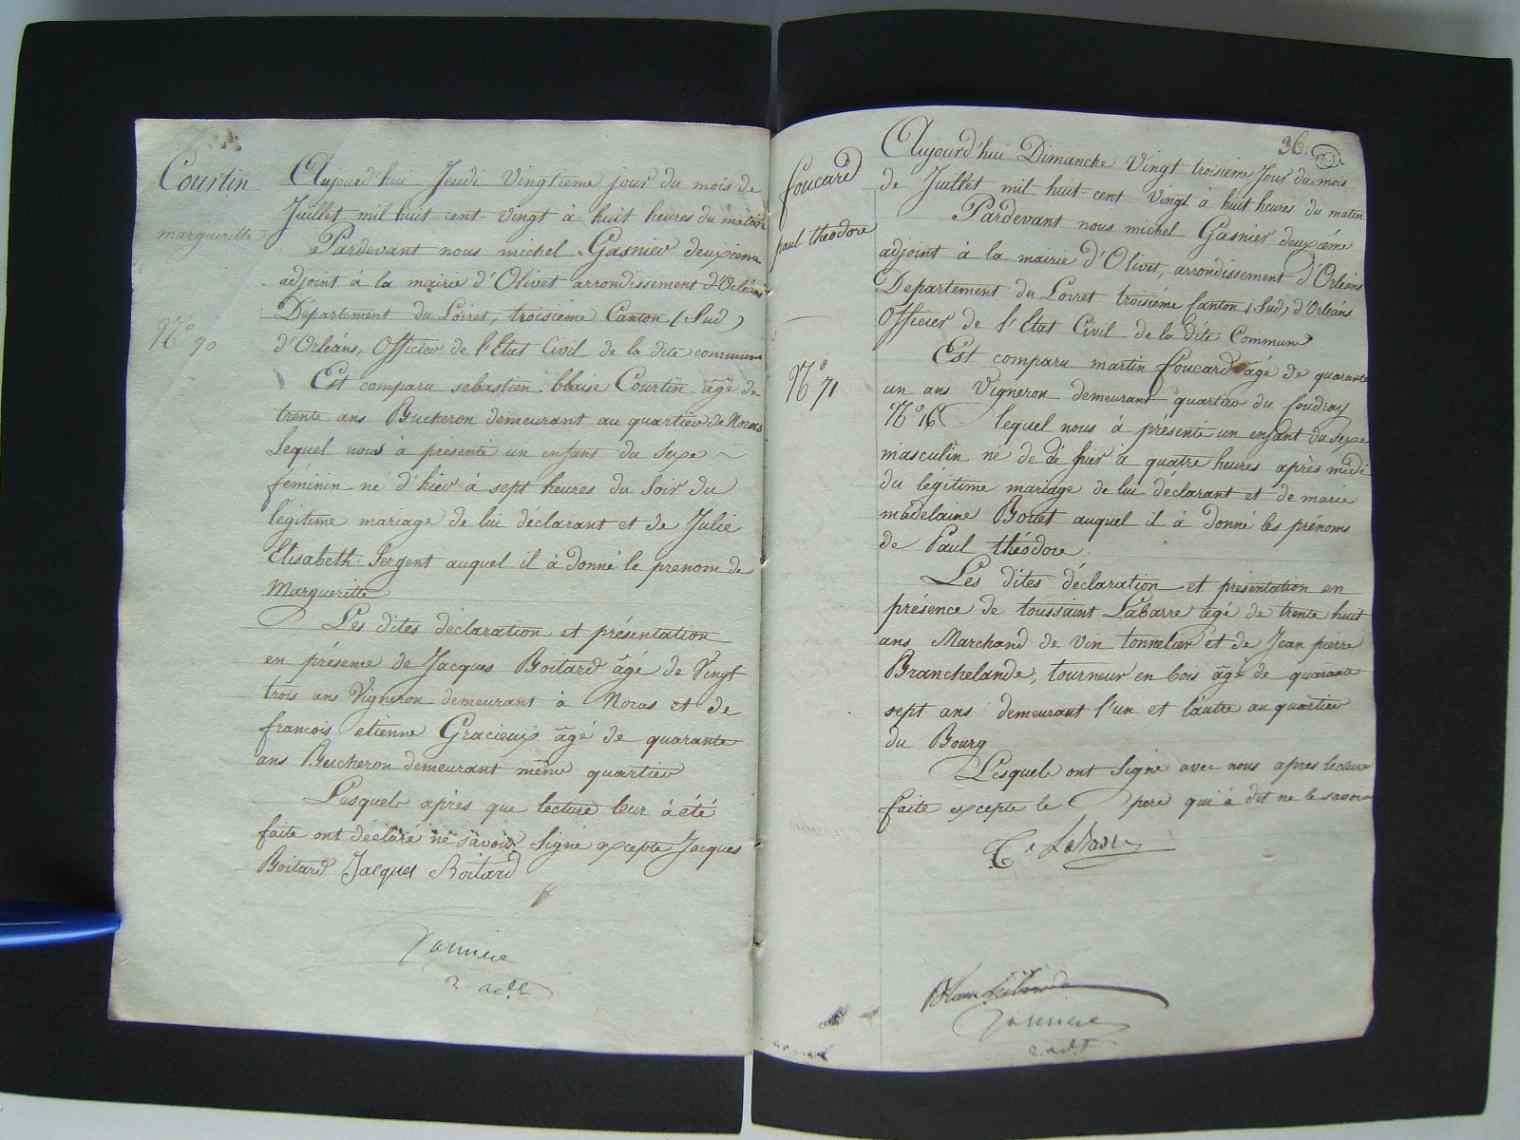 Courtin
margueritte
N° 90
Aujourd'hui Jeudi vingtieme jour du mois de
Juillet mil huit cent vingt à huit heures du matin
Pardevant nous michel Gasnier deuxieme
adjoint à la mairie d'Olivet arrondissement d'Orléans
Département du Loiret, troisieme Canton (Sud)
d'Orleans, Officier de l'Etat Civil de la dite commune
Est comparu sebastien blaise Courtin agé de
trente ans Bucheron demeurant au quartier de Noras
Lequel nous à presenté un enfant du Sexe
féminin né d'hier à sept heures du Soir du
légitime mariage de lui déclarant et de Julie
Elisabeth Sergent auquel il à donné le prenom de
Margueritte
Les dites déclaration et présentation
en présence de Jacques Boitard âgé de Vingt
trois ans Vigneron demeurant à Noras et de
francois etienne Gracieux âgé de quarante
ans Bucheron demeurant même quartier
Lesquels après que lecture leur à été
faite ont déclaré ne savoir signé excepte Jacques
Boitard Jacques Boitard
2 adt
36.
foucard
paul théodore
N° 71
Aujourd'hui Dimanche Vingt troisieme Jour du mois
de Juillet mil huit-cent Vingt à huit heures du matin
Pardevant nous michel Gasnier deuxiéme
adjoint à la mairie d'Olivet, arrondissement d'Orleans
Departement du Loiret troisiéme Canton (Sud) d'Orleans
Officier de l'Etat Civil de la dite Commune
Est comparu martin foucard agé de quarante
un ans Vigneron demeurant quartier du Coudray
N° 16 lequel nous à presenté un enfant du Sexe
masculin né de à quatre heures après midi
du légitime mariage de lui déclarant et de marie
madelaine auquel il à donné les prénoms
de Paul théodore.
Les dites déclaration et présentation en
présence de toussaint Labarre agé de trente huit
ans Marchand de vin tonnelier et de Jean pierre
Branchelande, tourneur en bois âgé de quarante
sept ans demeurant l'un et l'autre au quartier
du Bourg
Lesquels ont Signé avec nous apres lecture
faite excepte le pere qui à dit ne le savoir
Labarre
2 adt